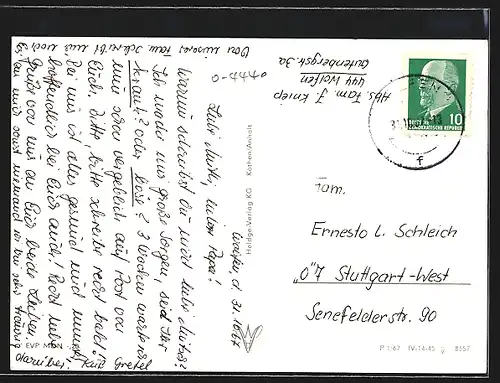 Von unseres Tom schreibt uns noch
0-4440
Abs. Fam. J. Kniep
444 Wolfen
Gutenbergstr. 3a
10
DEUTSCHE DEMOKRATISCHE REPUBLIK
f
Wolfen, d. 31. 10. 67
Liebe Mutti, lieber Papa!
Warum schreibst du nicht liebe Mutter?
Ich mache mir große Sorgen, seid Ihr
krank? oder böse? 3 Wochen warte ich
nun schon vergeblich auf Post von
Euch, bitte, bitte schreibe recht bald!
Bei mir ist alles gesund und munter
hoffentlich bei Euch auch! Recht liebe
Grüße von mir an Euch beide Lieben
Es sind mir sonst niemand
Kuß Gretel
darüber!
Heldge-Verlag KG Köthen/Anhalt
Fam.
Ernesto L. Schleich
"O" 7 Stuttgart-West
Senefelderstr. 90
EVP MDN
P 1/67 IV-14-45 g 8557